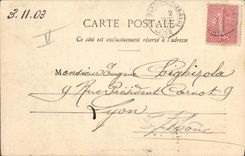 3.11.03
CARTE POSTALE
Ce côté est exclusivement réservé à l'adresse
Monsieur Eugène
9 Rue Président Carnot 9
Lyon